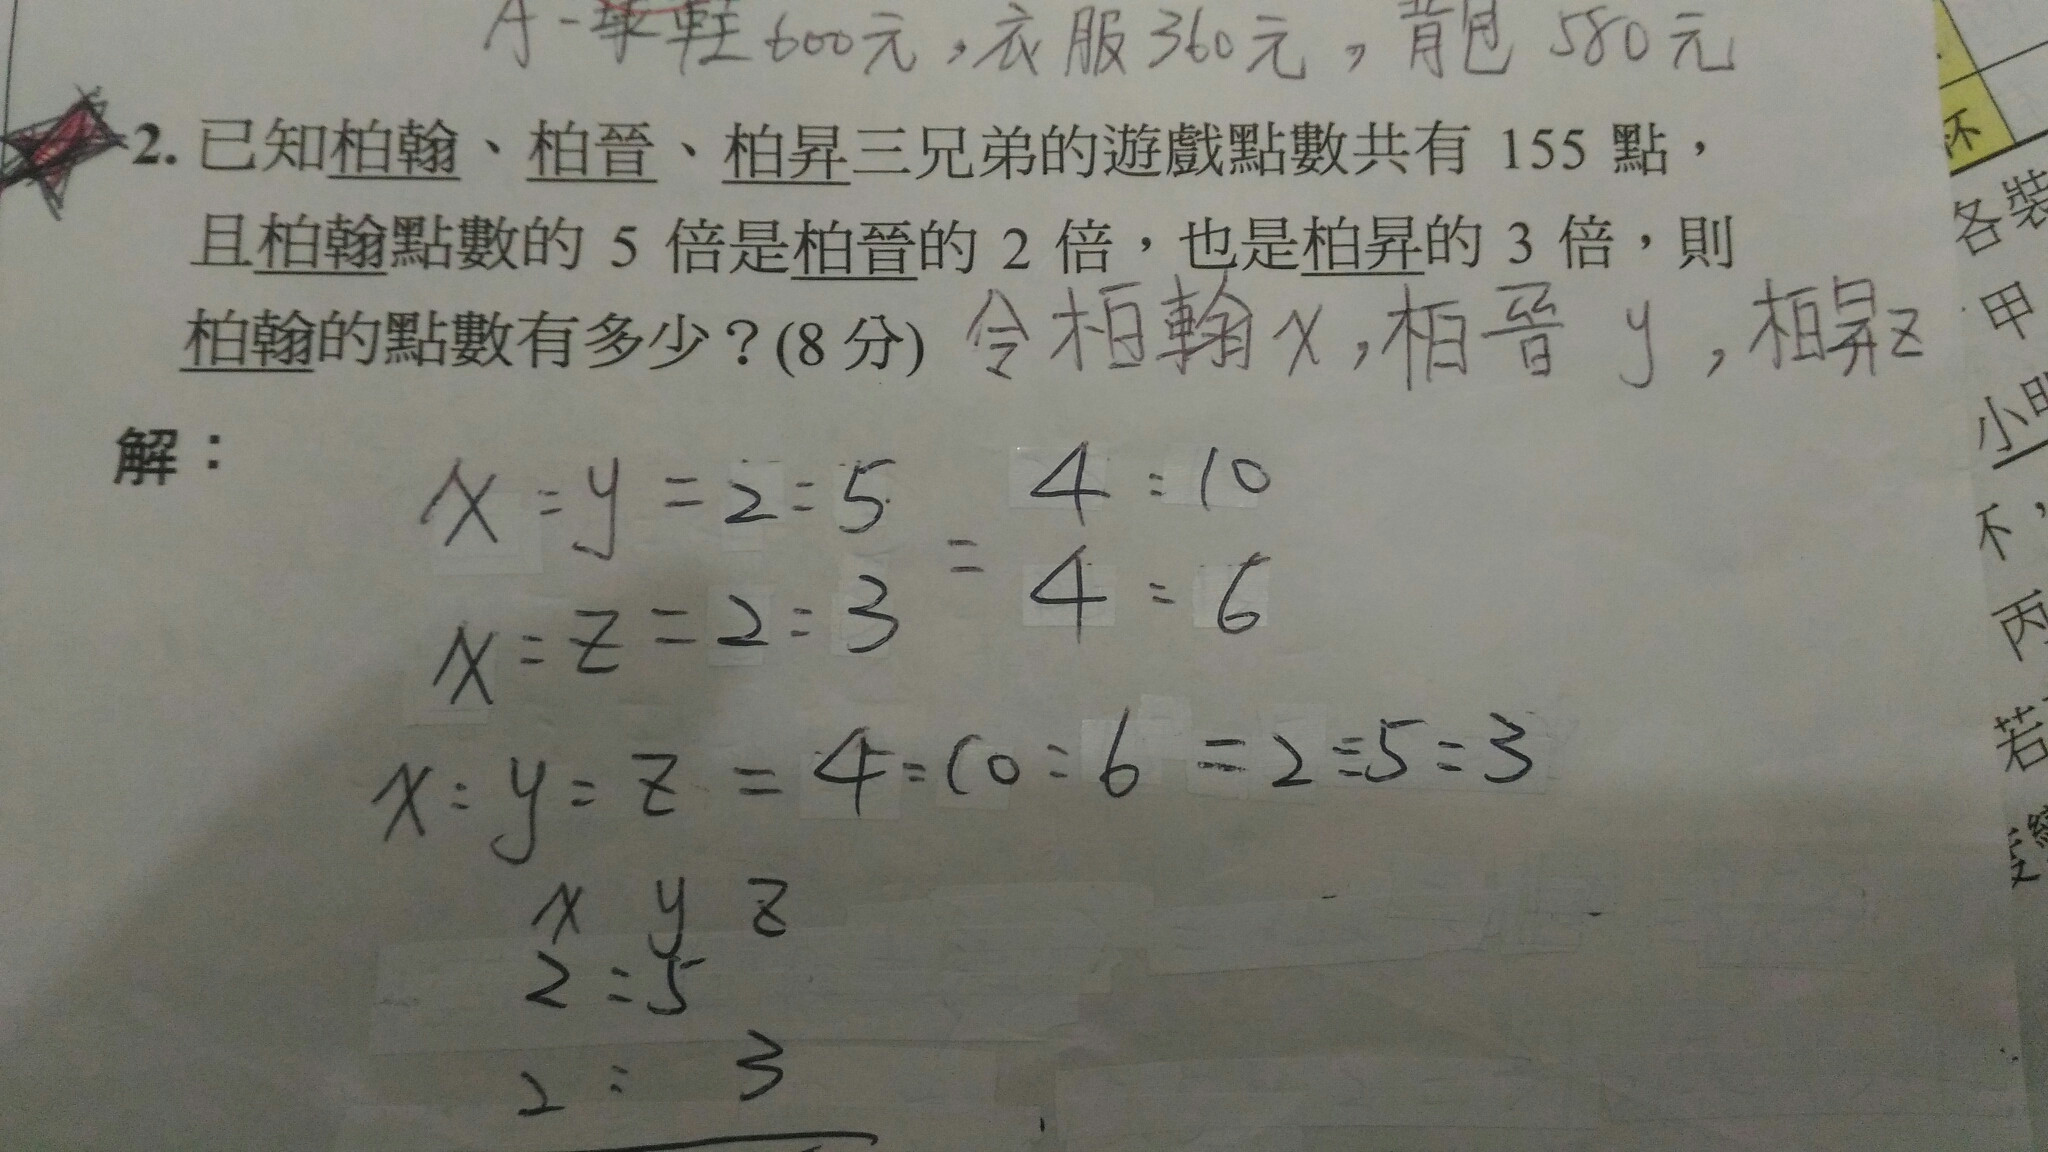 A-球鞋600元,衣服360元,背包580元
2. 已知柏翰、柏晉、柏昇三兄弟的遊戲點數共有 155 點,
且柏翰點數的 5 倍是柏晉的 2 倍,也是柏昇的 3 倍,則
柏翰的點數有多少?(8 分) 令柏翰x,柏晉y,柏昇z
解:
x:y=2:5 = 4:10
x:z=2:3 4:6
x:y:z=4:10:6=2:5:3
x y z
2:5
2: 3
杯
各裝
甲
小明
不,
丙
若